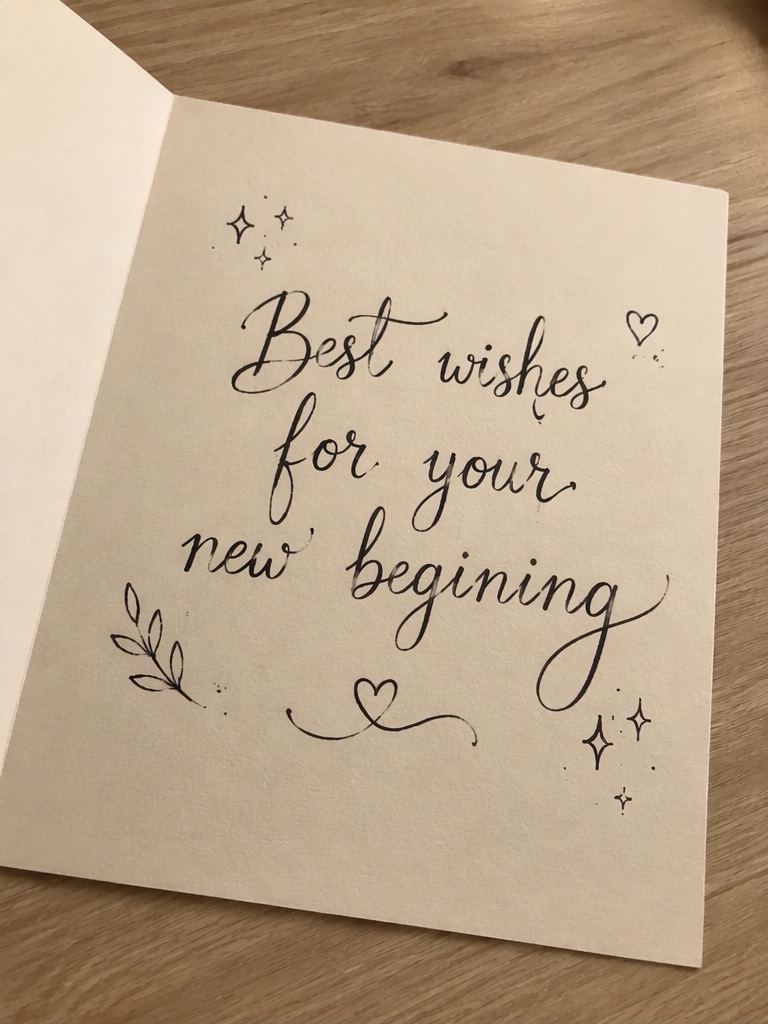 Best wishes
for your
new begining